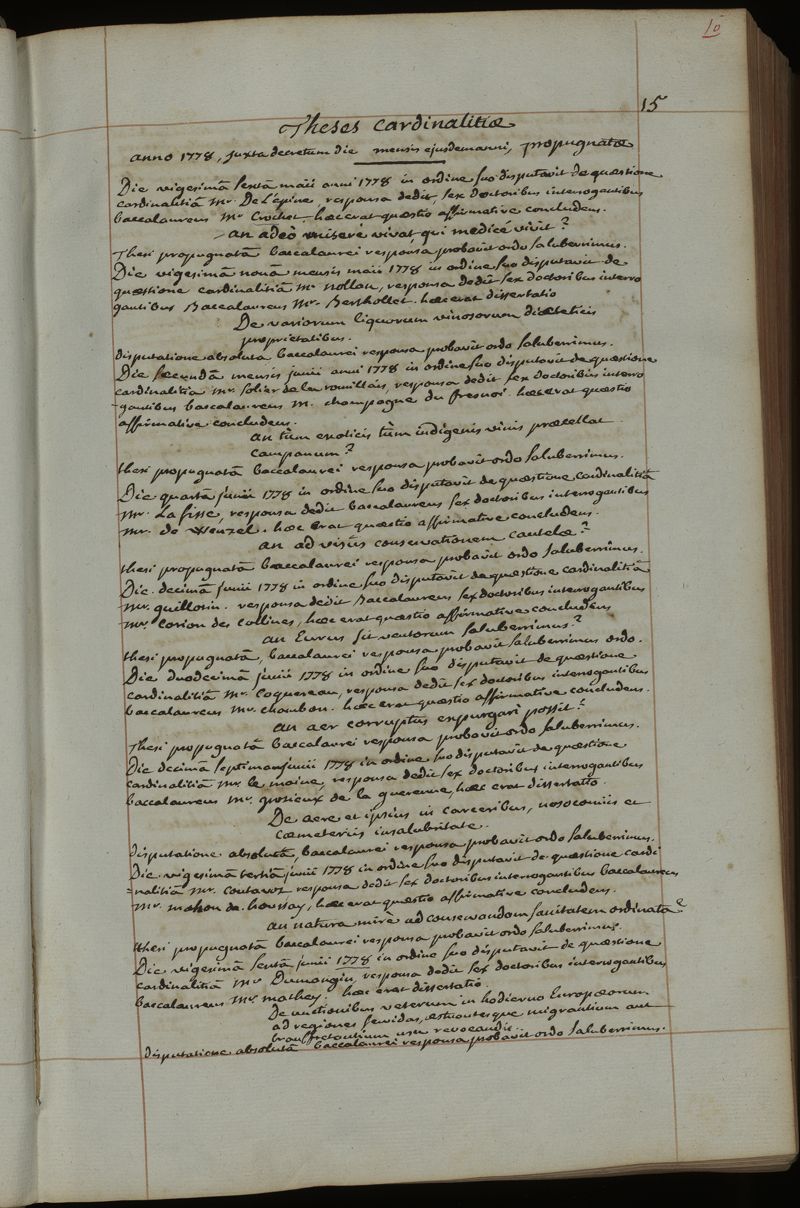 10
15
Theses cardinalitiæ
anno 1778, juxta decretum die mensis ejusdem anni, propugnatæ
Die vigesimâ sextâ maii anni 1778 in ordine suo disputavit de quæstione
cardinalitiâ Mr. De L'épine, responsa dedit sex doctoribus interrogantibus
baccalaureus Mr Crochet. hæc erat quæstio affirmative concludens.
an adeò miserè vivat, qui medicè vivit?
Thesi propugnatâ baccalaurei responsa probavit ordo saluberrimus.
Die vigesimâ nonâ mensis maii 1778 in ordine suo disputavit de
quæstione cardinalitiâ Mr nollan, responsa dedit sex doctoribus interro
gantibus Baccalaureus Mr. Berthollet. hæc erat dissertatio
De variorum liquorum vinosorum diæteticis
proprietatibus.
disputatione absoluta baccalaurei responsa probavit ordo saluberrimus.
Die secundâ mensis junii anni 1778 in ordine suo disputavit de quæstione
cardinalitia Mr. solier de la romillais, responsa dedit sex doctoribus interro
-gantibus baccalaureus M. champagne du fresnoi. hæc erat quæstio
affirmative concludens.
an tùm exoticis tùm indigenis vinis præcellat
campanum?
thesi propugnatâ baccalaurei responsa probavit ordo saluberrimus.
Die quartâ junii 1778 in ordine suo disputavit de quæstione cardinalitiâ
Mr. La fisse, responsa dedit baccalaureus sex doctoribus interrogantibus
Mr. de Wenzel. hæc erat quæstio affirmative concludens.
an ad visûs conservationem cautelæ?
thesi propugnatâ baccalaurei responsa probavit ordo saluberrimus.
Die decimâ junii 1778 in ordine suo disputavit de quæstione cardinalitiâ
Mr. guillotin. responsa dedit Baccalaureus sex doctoribus interrogantibus
Mr. Corion des Collines, hæc erat quæstio affirmative concludens
an Eurus sit ventorum saluberrimus?
thesi propugnatâ, baccalaurei responsa probavit saluberrimus ordo.
Die duodecimâ junii 1778 in ordine suo disputavit de quæstione
cardinalitiâ Mr. Coquereau, responsa dedit sex doctoribus interrogantibus
baccalaureus Mr. chambon. hæc erat quæstio affirmative concludens.
an aer corruptus expurgari possit?
Thesi propugnatâ baccalaurei responsa probavit ordo saluberrimus.
Die decimâ septimâ junii 1778 in ordine suo disputavit de quæstione
cardinalitiâ Mr. le moine, responsa dedit sex doctoribus interrogantibus
baccalaureus Mr. grosieux de la guerenne, hæc erat dissertatio.
De aere et ipsius in carceribus, nosocomiis et
cæmeteriis insalubritate.
disputatione absolutâ, baccalaurei responsa probavit ordo saluberrimus.
Die vigesimâ tertiâ junii 1778 in ordine suo disputavit de quæstione cardi
=nalitiâ Mr. Coutavoz responsa dedit sex doctoribus interrogantibus baccalaureus
Mr. mahon de houssay, hæc erat quæstio affirmative concludens.
an natura mirè ad conservandam sanitatem ordinata?
thesi propugnatâ baccalaurei responsa probavit ordo saluberrimus.
Die vigesimâ sextâ junii 1778 in ordine suo disputavit de quæstione
cardinalitiâ Mr Dumangin, responsa dedit sex doctoribus interrogantibus
baccalaureus Mr. mathey. hæc erat dissertatio.
De unctionibus veterum in hodierno Europæorum
ad regiones fervidas, æstuantesque migrantium aut
usu revocandis.
disputatione absolutâ baccalaurei responsa probavit ordo saluberrimus.